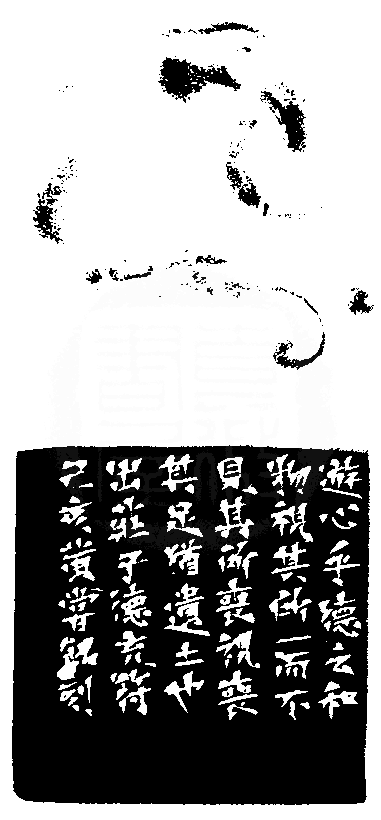 遊心乎德之和
物視其所一而不
見其所喪視喪
其足猶遺土也
出莊子德充符
己亥黄嘗銘刻